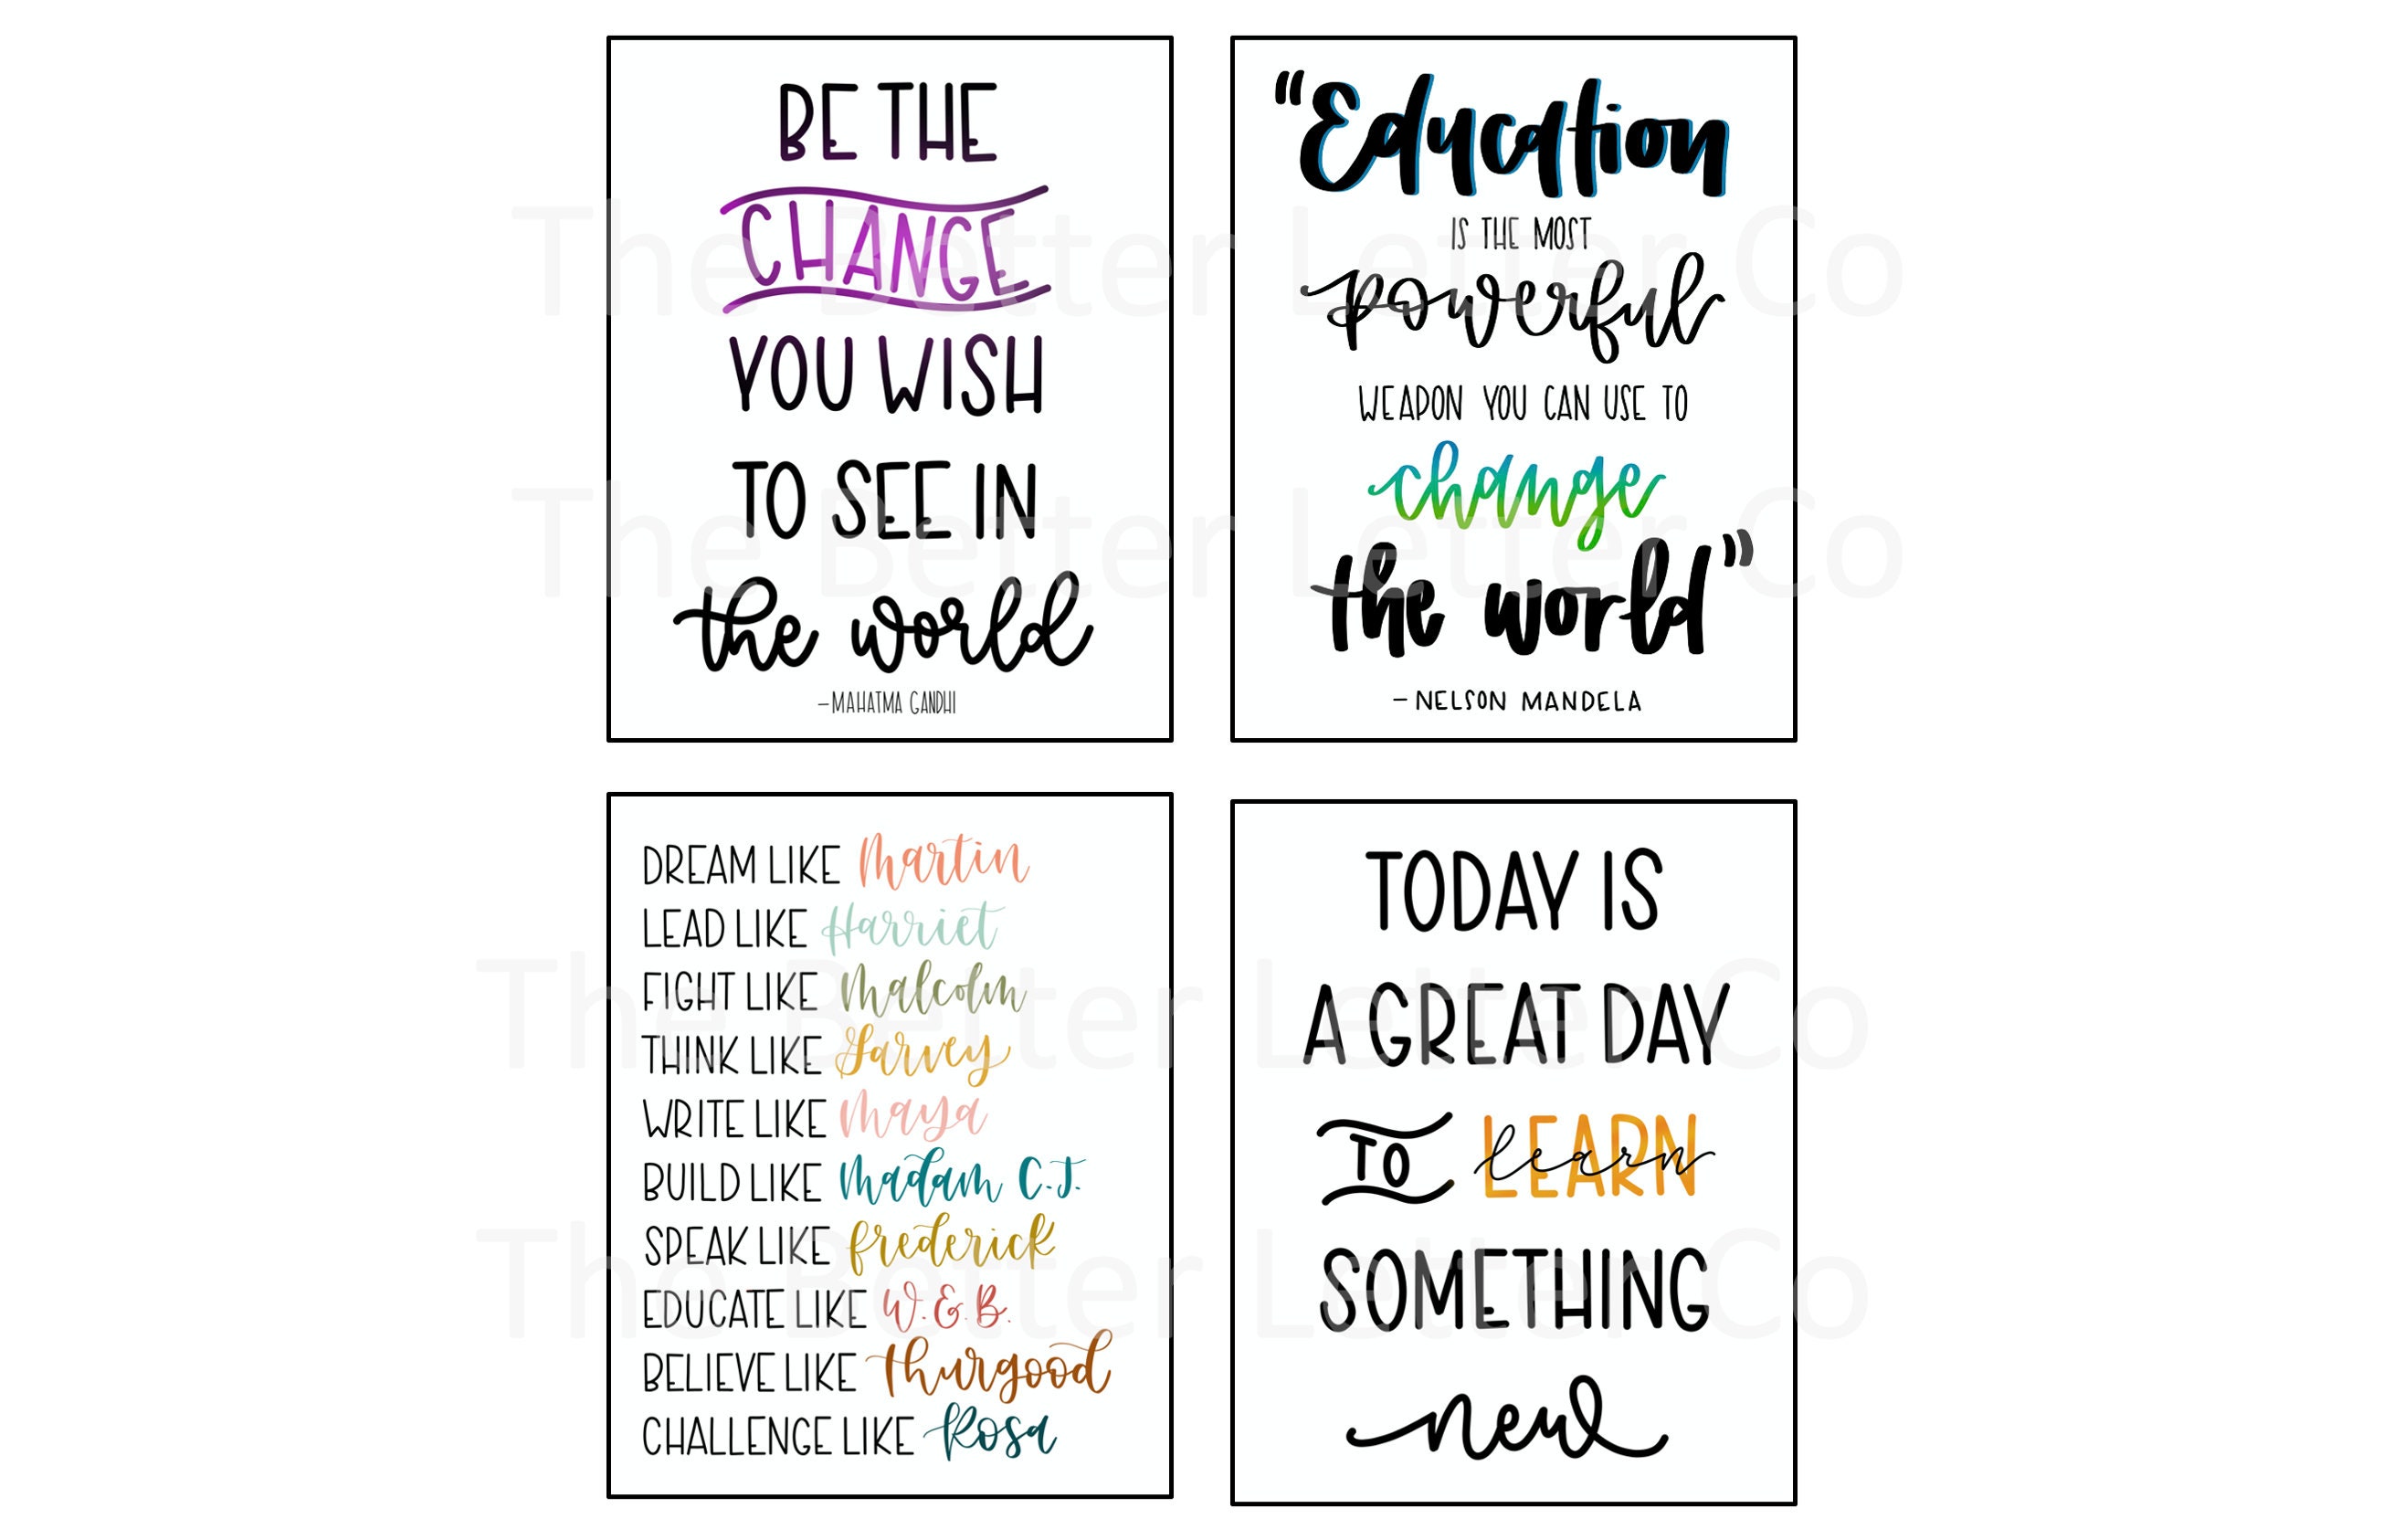 BE THE
CHANGE
YOU WISH
TO SEE IN
the world
–MAHATMA GANDHI
“Education
IS THE MOST
powerful
WEAPON YOU CAN USE TO
change
the world”
– NELSON MANDELA
DREAM LIKE Martin
LEAD LIKE Harriet
FIGHT LIKE Malcolm
THINK LIKE Garvey
WRITE LIKE Maya
BUILD LIKE Madam C.J.
SPEAK LIKE frederick
EDUCATE LIKE W.E.B.
BELIEVE LIKE thurgood
CHALLENGE LIKE Rosa
TODAY IS
A GREAT DAY
TO LEARN learn
SOMETHING
new
The Better Letter Co
The Better Letter Co
The Better Letter Co
The Better Letter Co